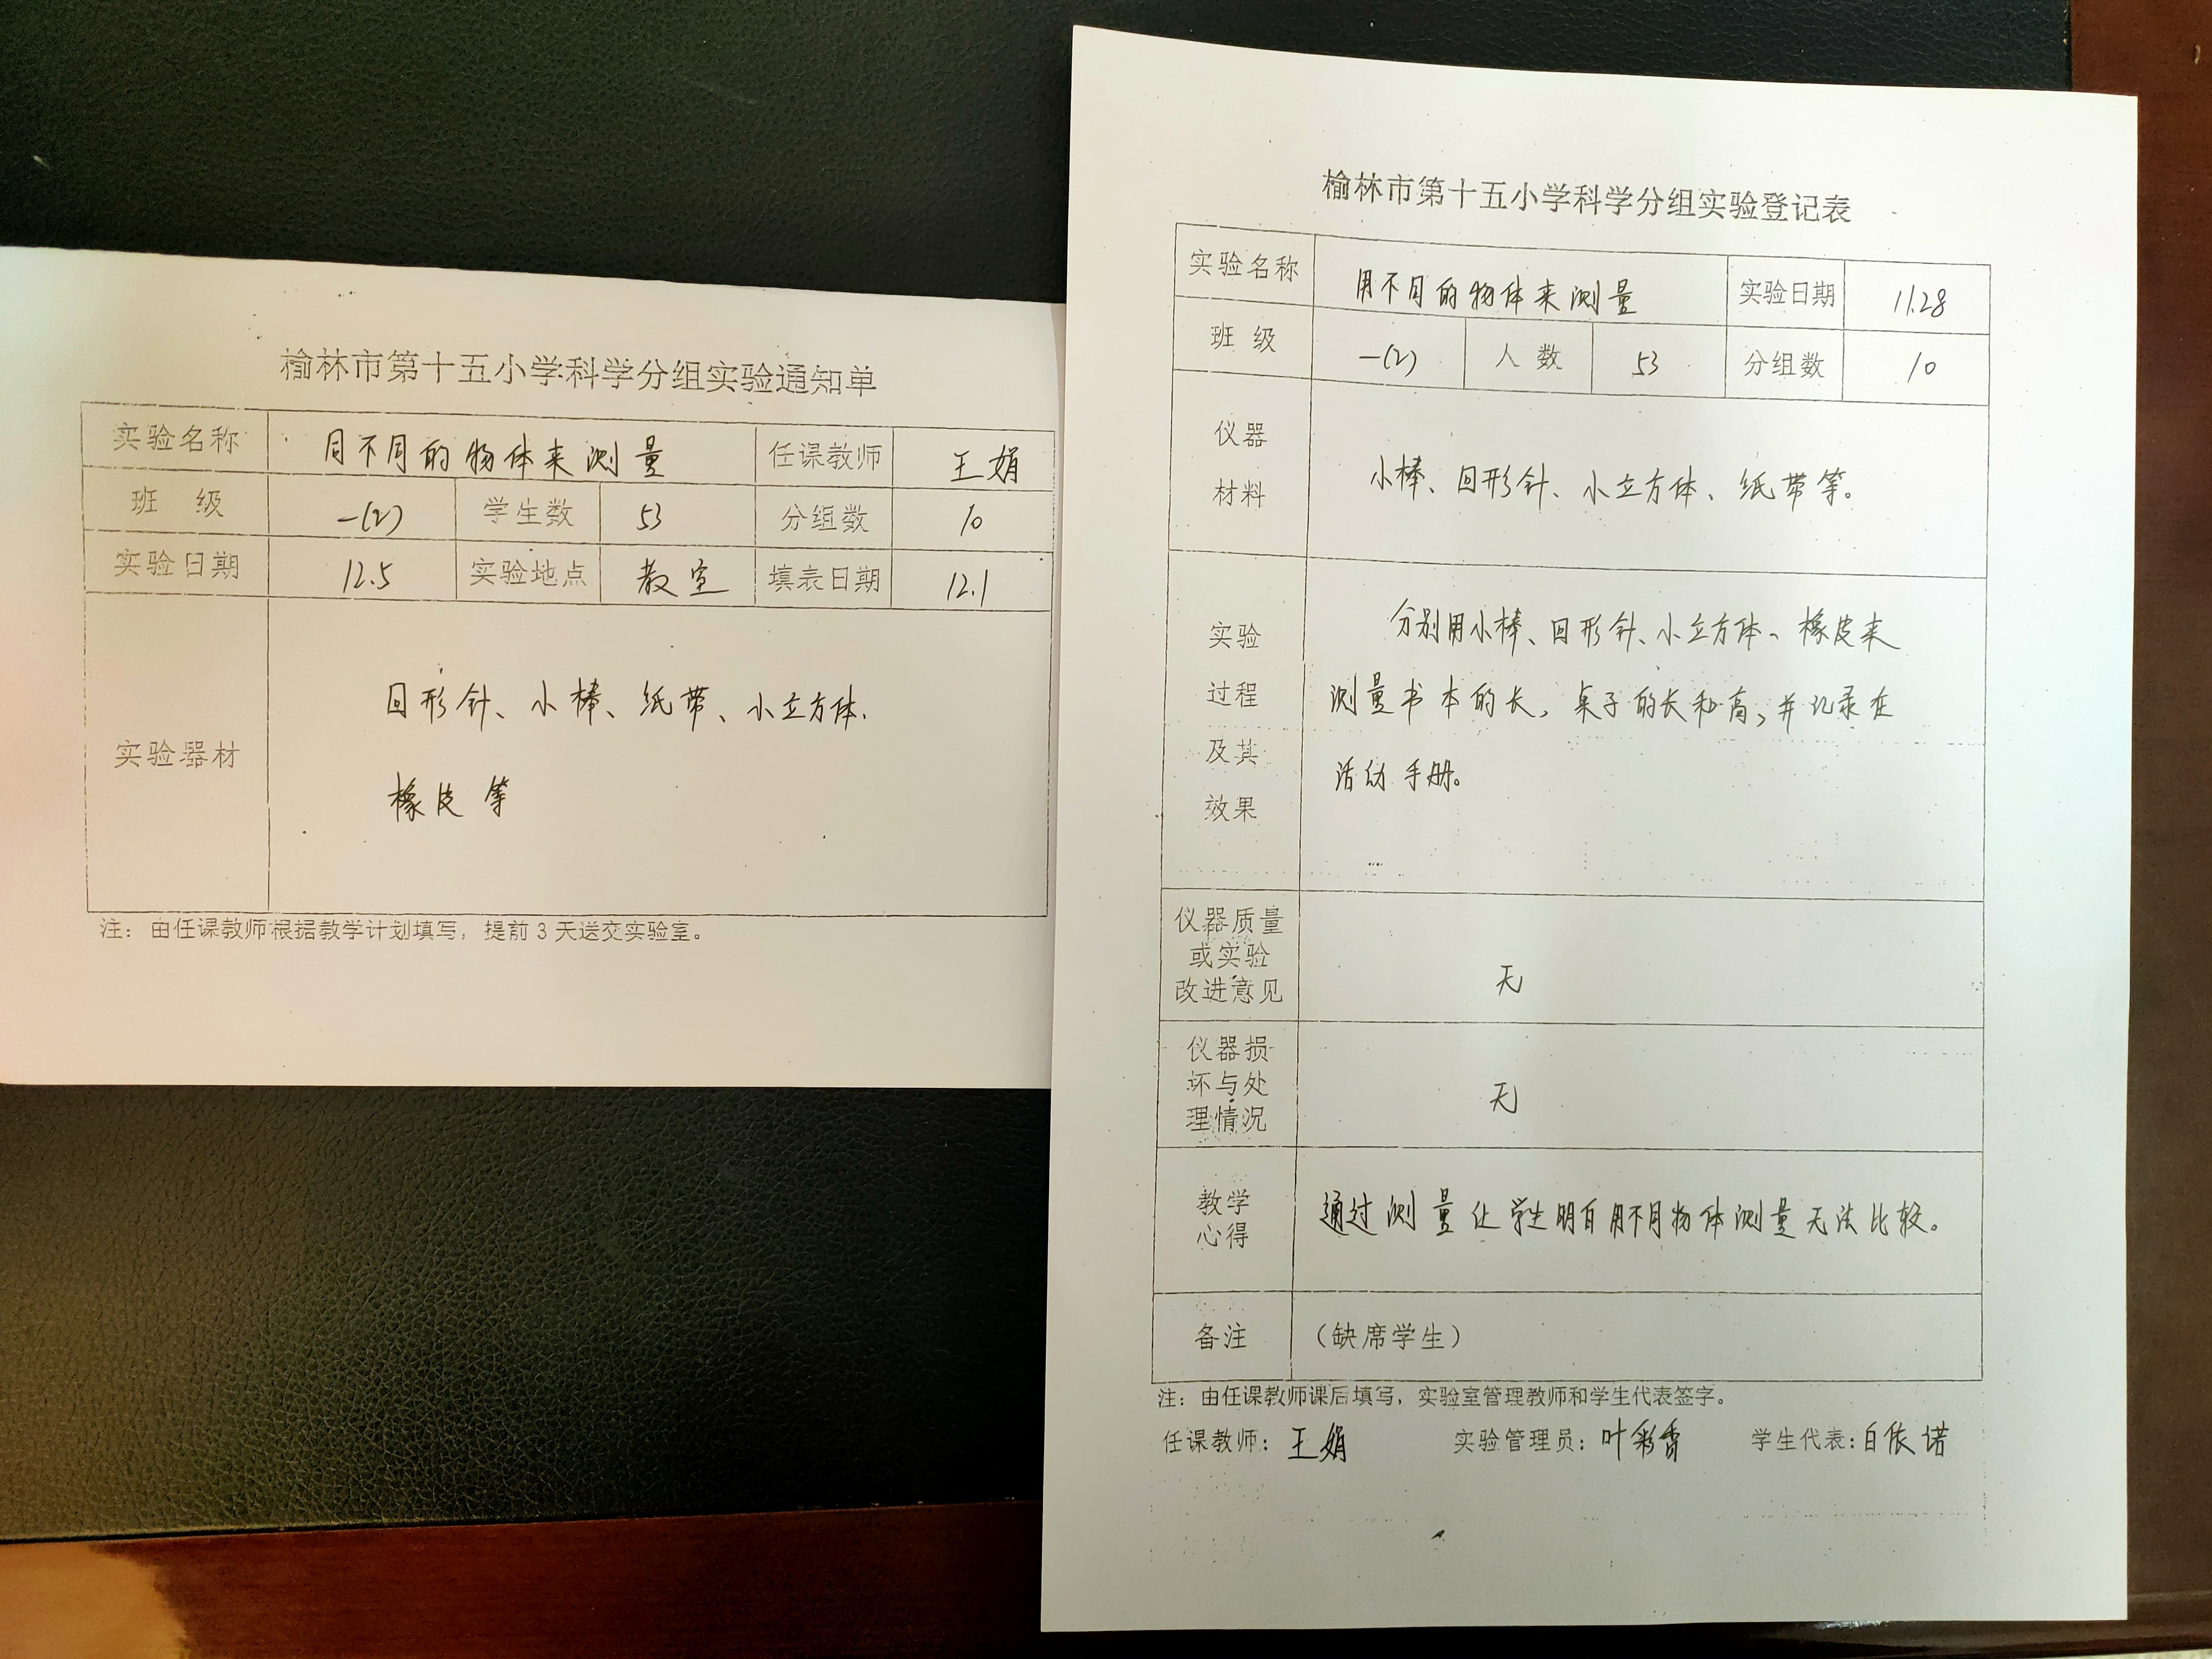 榆林市第十五小学科学分组实验通知单
实验名称 用不同的物体来测量 任课教师 王娟
班 级 一(2) 学生数 53 分组数 10
实验日期 12.5 实验地点 教室 填表日期 12.1
实验器材
回形针、小棒、纸带、小立方体、
橡皮等
注：由任课教师根据教学计划填写，提前3天送交实验室。
榆林市第十五小学科学分组实验登记表
实验名称 用不同的物体来测量 实验日期 11.28
班 级 一(2) 人数 53 分组数 10
仪器
材料
小棒、回形针、小立方体、纸带等。
实验
过程
及其
效果
分别用小棒、回形针、小立方体、橡皮来
测量书本的长，桌子的长和高，并记录在
活动手册。
仪器质量
或实验
改进意见
无
仪器损
坏与处
理情况
无
教学
心得
通过测量让学生明白用不同物体测量无法比较。
备注 （缺席学生）
注：由任课教师课后填写，实验室管理教师和学生代表签字。
任课教师：王娟 实验管理员：叶彩香 学生代表：白依诺